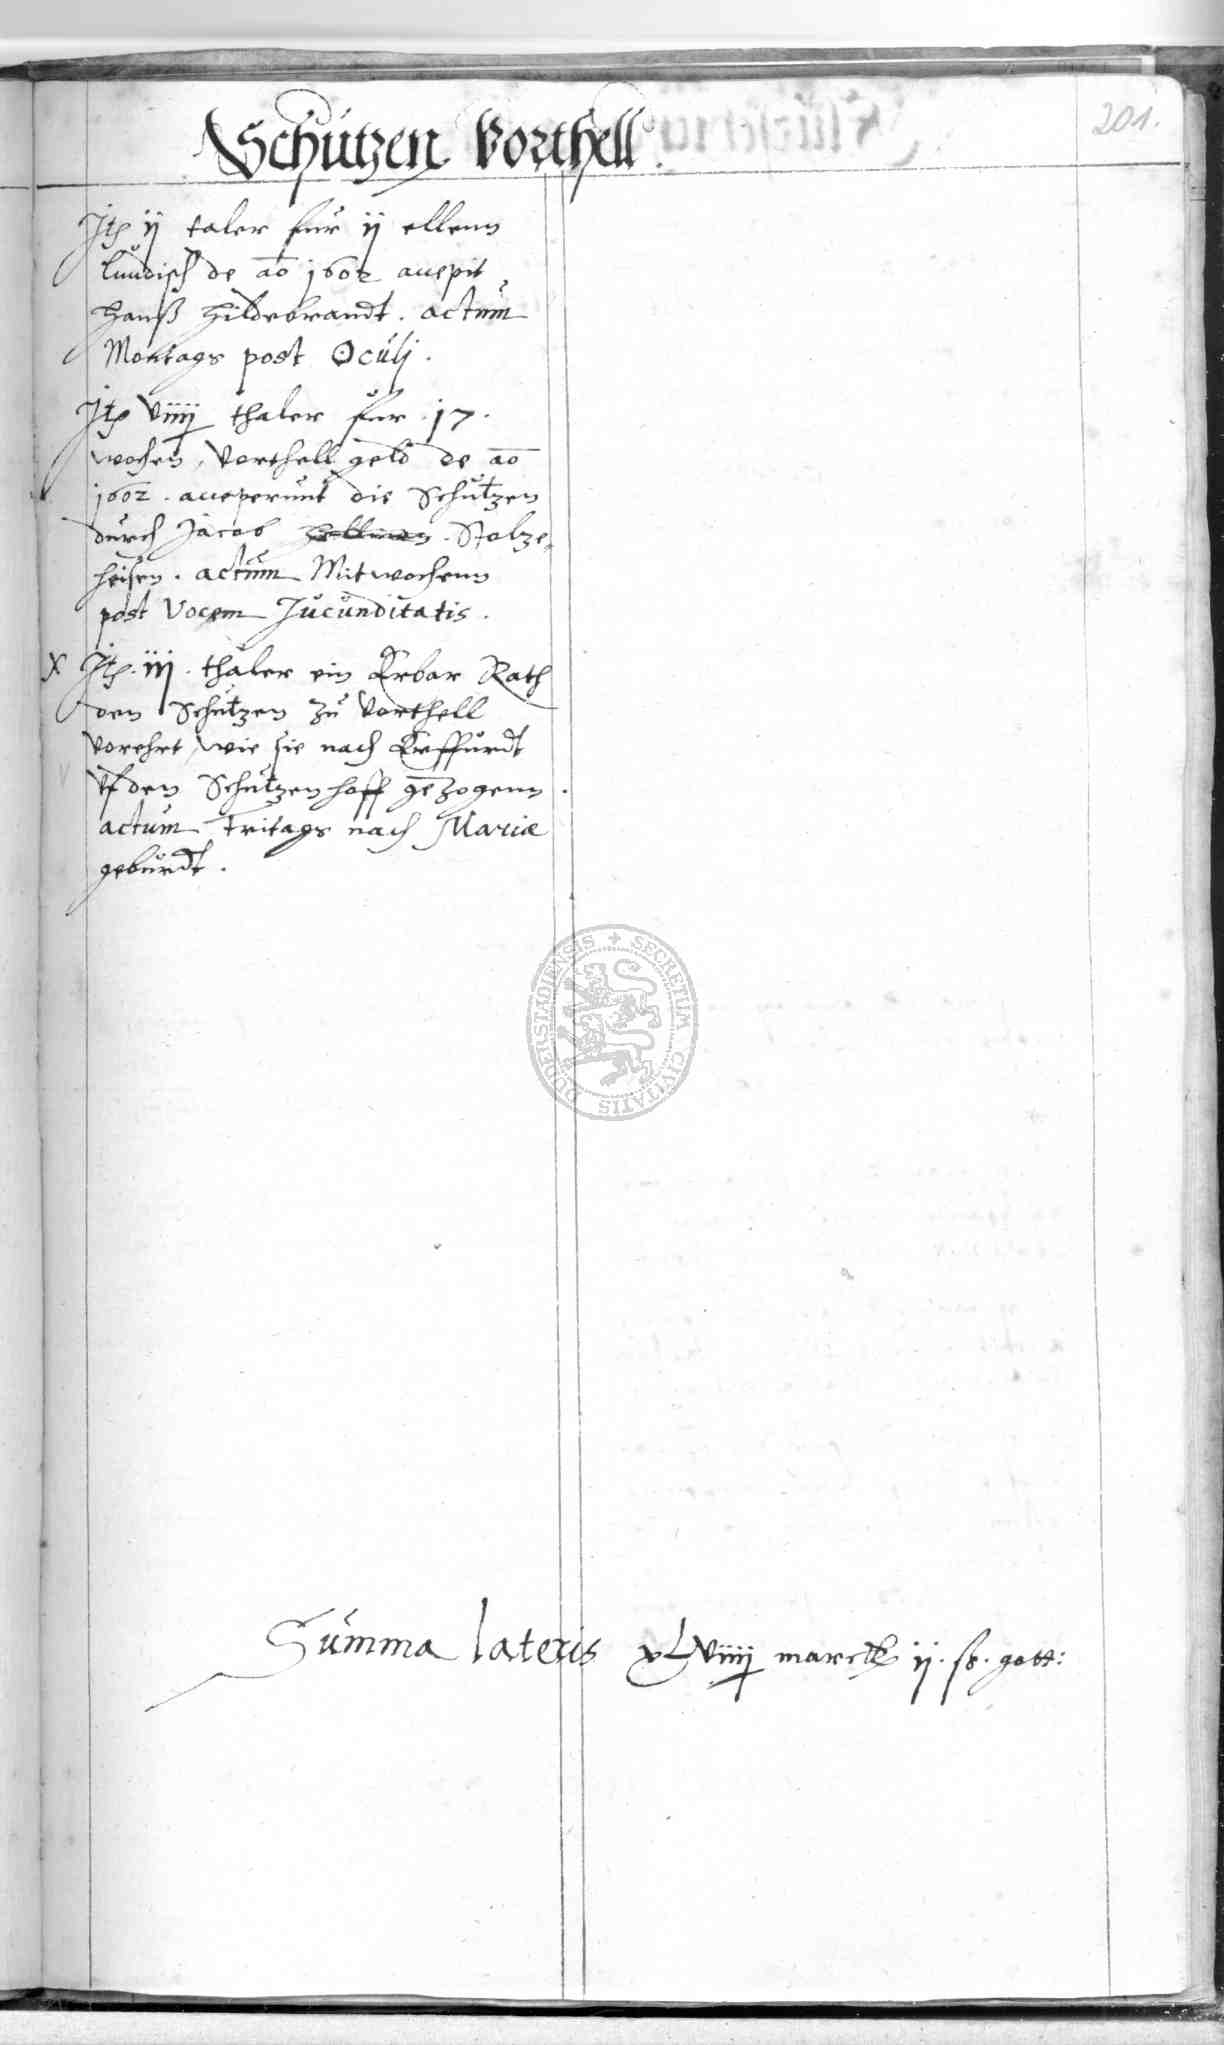 201.
Schützen Vorthell.
Jtē ij taler für ij ellenn
lundisch de ao 1602 accepit
Hanß Hildebrandt. actum
Montags post Oculj.
Jtē viiij thaler für 17.
wochen, Vorthell geld de ao
1602. acceperunt die Schützen
durch Jacob Stolze„
heisen. actum Mitwochenn
post Vocem Jucunditatis.
X Jtē. iij. thaler ein Erbar Rath
den Schützen zu Vorthell
vorehrt, wie sie nach Erffurdt
vf den Schützenhoff gezogenn.
actum Fritags nach Mariæ
geburdt.
DUDERSTADIENSIS + SECRETUM CIVITATIS
Summa lateris xLviiij marck ij. ß. gött: